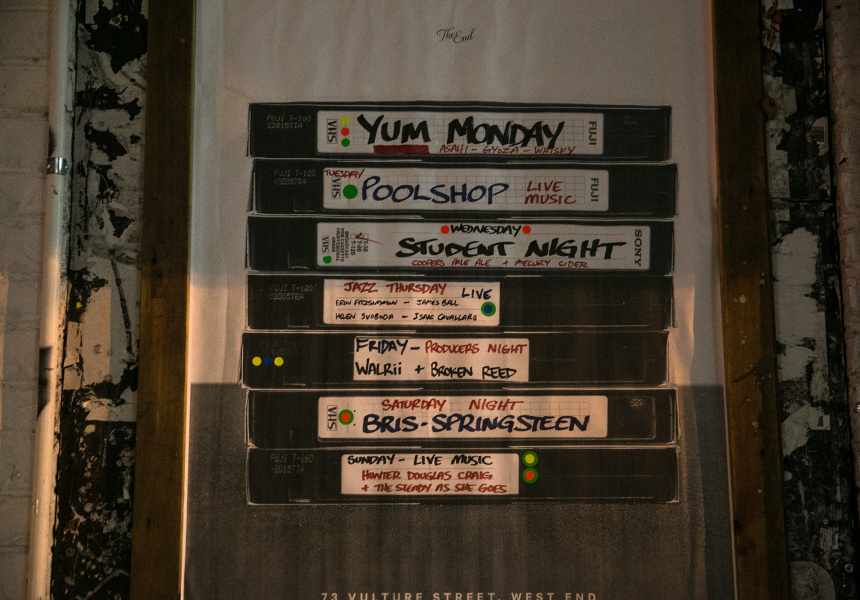 The End
FUJI T-160
2261571A
VHS
YUM MONDAY
ASAHI - GYOZA - WHISKY
FUJI
FUJI T-120
VHS
TUESDAY
POOLSHOP
LIVE
MUSIC
FUJI
VHS
WEDNESDAY
STUDENT NIGHT
COOPERS PALE ALE + MECURY CIDER
SONY
FUJI T-120
JAZZ THURSDAY
LIVE
ERIN FITZSIMMON - JAMES BALL
HELEN SVOBODA - ISAAC CAVALLARO
FRIDAY - PRODUCERS NIGHT
WALRii + BROKEN REED
VHS
SATURDAY NIGHT
BRIS-SPRINGSTEEN
FUJI T-160
SUNDAY - LIVE MUSIC
HUNTER DOUGLAS CRAIG
+ THE STEADY AS SHE GOES
73 VULTURE STREET, WEST END